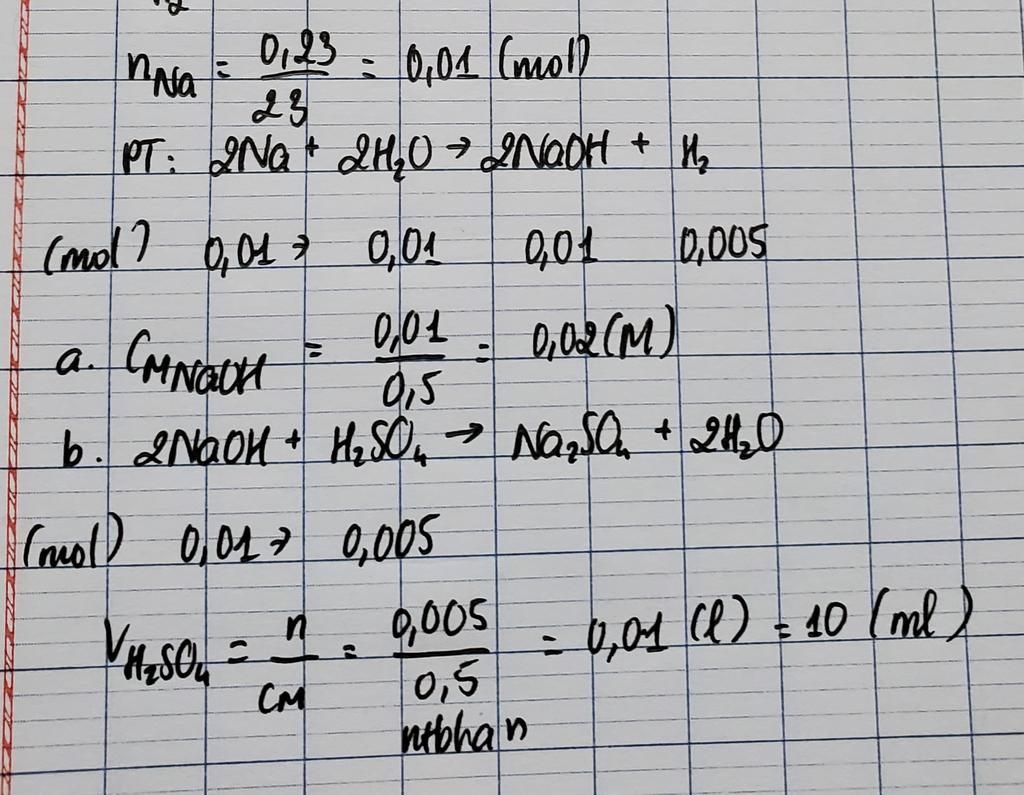 nNa = 0,23/23 = 0,01 (mol)
PT: 2Na + 2H₂O → 2NaOH + H₂
(mol) 0,01 → 0,01 0,01 0,005
a. CMNaOH = 0,01/0,5 = 0,02(M)
b. 2NaOH + H₂SO₄ → Na₂SO₄ + 2H₂O
(mol) 0,01 → 0,005
VH₂SO₄ = n/CM = 0,005/0,5 = 0,01 (l) = 10 (ml)
ntbhan